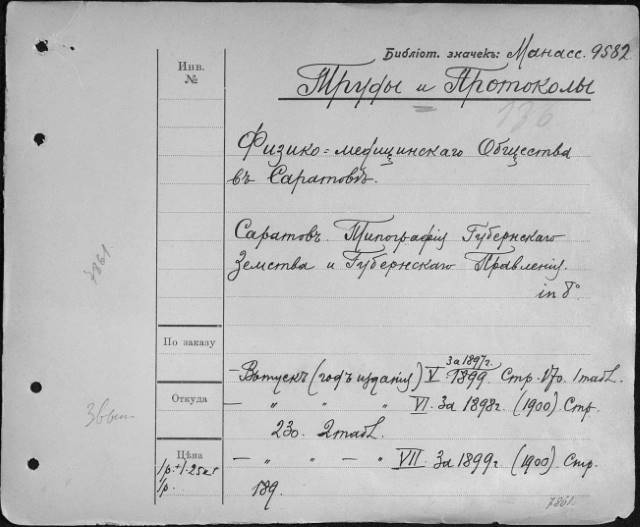 Библіот. значекъ: Манасс. 9582
Инв.
№
Труды и Протоколы
136
Физико-медицинскаго Общества
въ Саратовѣ.
Саратовъ. Типографія Губернскаго
Земства и Губернскаго Правленія.
in 8°
7861.
По заказу
за 1897г.
Выпускъ (годъ изданія) V 1899. Стр. 170. 1 табл.
Откуда
— " " " VI. За 1898г. (1900). Стр.
230. 2 табл.
Цѣна
— " " — " VII. За 1899г. (1900). Стр.
1р.
189.
7861.